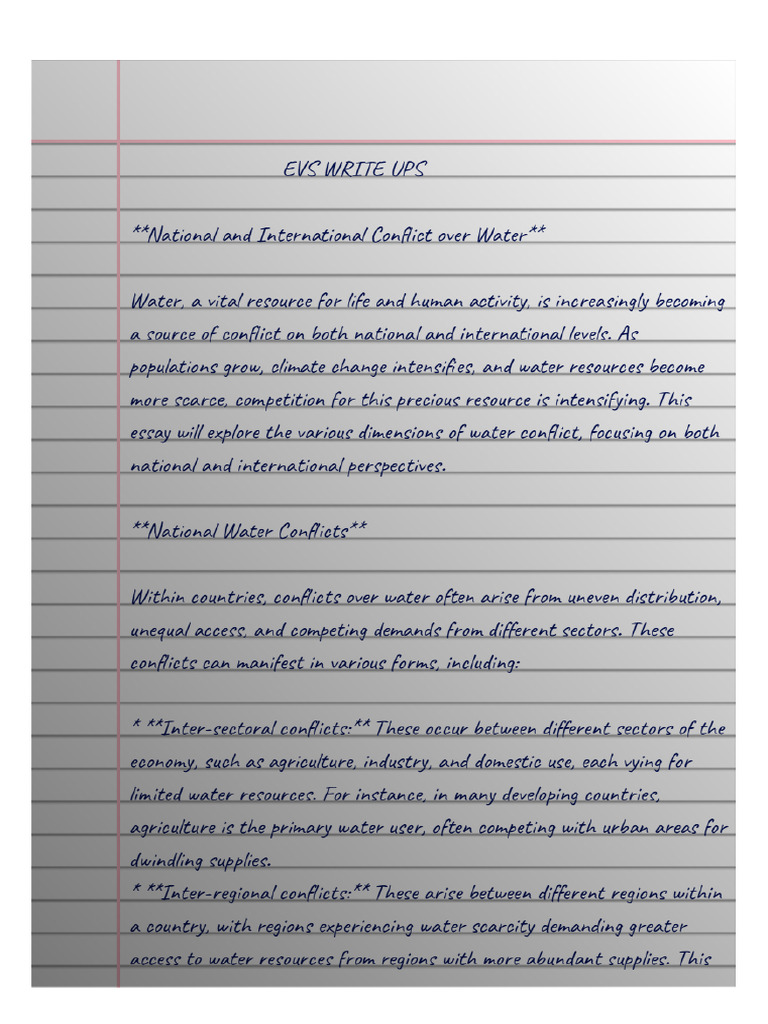 EVS WRITE UPS
**National and International Conflict over Water**
Water, a vital resource for life and human activity, is increasingly becoming
a source of conflict on both national and international levels. As
populations grow, climate change intensifies, and water resources become
more scarce, competition for this precious resource is intensifying. This
essay will explore the various dimensions of water conflict, focusing on both
national and international perspectives.
**National Water Conflicts**
Within countries, conflicts over water often arise from uneven distribution,
unequal access, and competing demands from different sectors. These
conflicts can manifest in various forms, including:
* **Inter-sectoral conflicts:** These occur between different sectors of the
economy, such as agriculture, industry, and domestic use, each vying for
limited water resources. For instance, in many developing countries,
agriculture is the primary water user, often competing with urban areas for
dwindling supplies.
* **Inter-regional conflicts:** These arise between different regions within
a country, with regions experiencing water scarcity demanding greater
access to water resources from regions with more abundant supplies. This